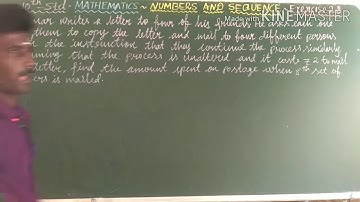 10th Std - MATHEMATICS - NUMBERS AND SEQUENCE Exercise 2.8
Made with KINEMASTER
writes a letter to four of his friends. He asks each one
them to copy the letter and mail to four different persons
the instruction that they continue the process similarly
that the process is unaltered and it costs ₹ 2 to mail
letter, find the amount spent on postage when 8th set of
is mailed